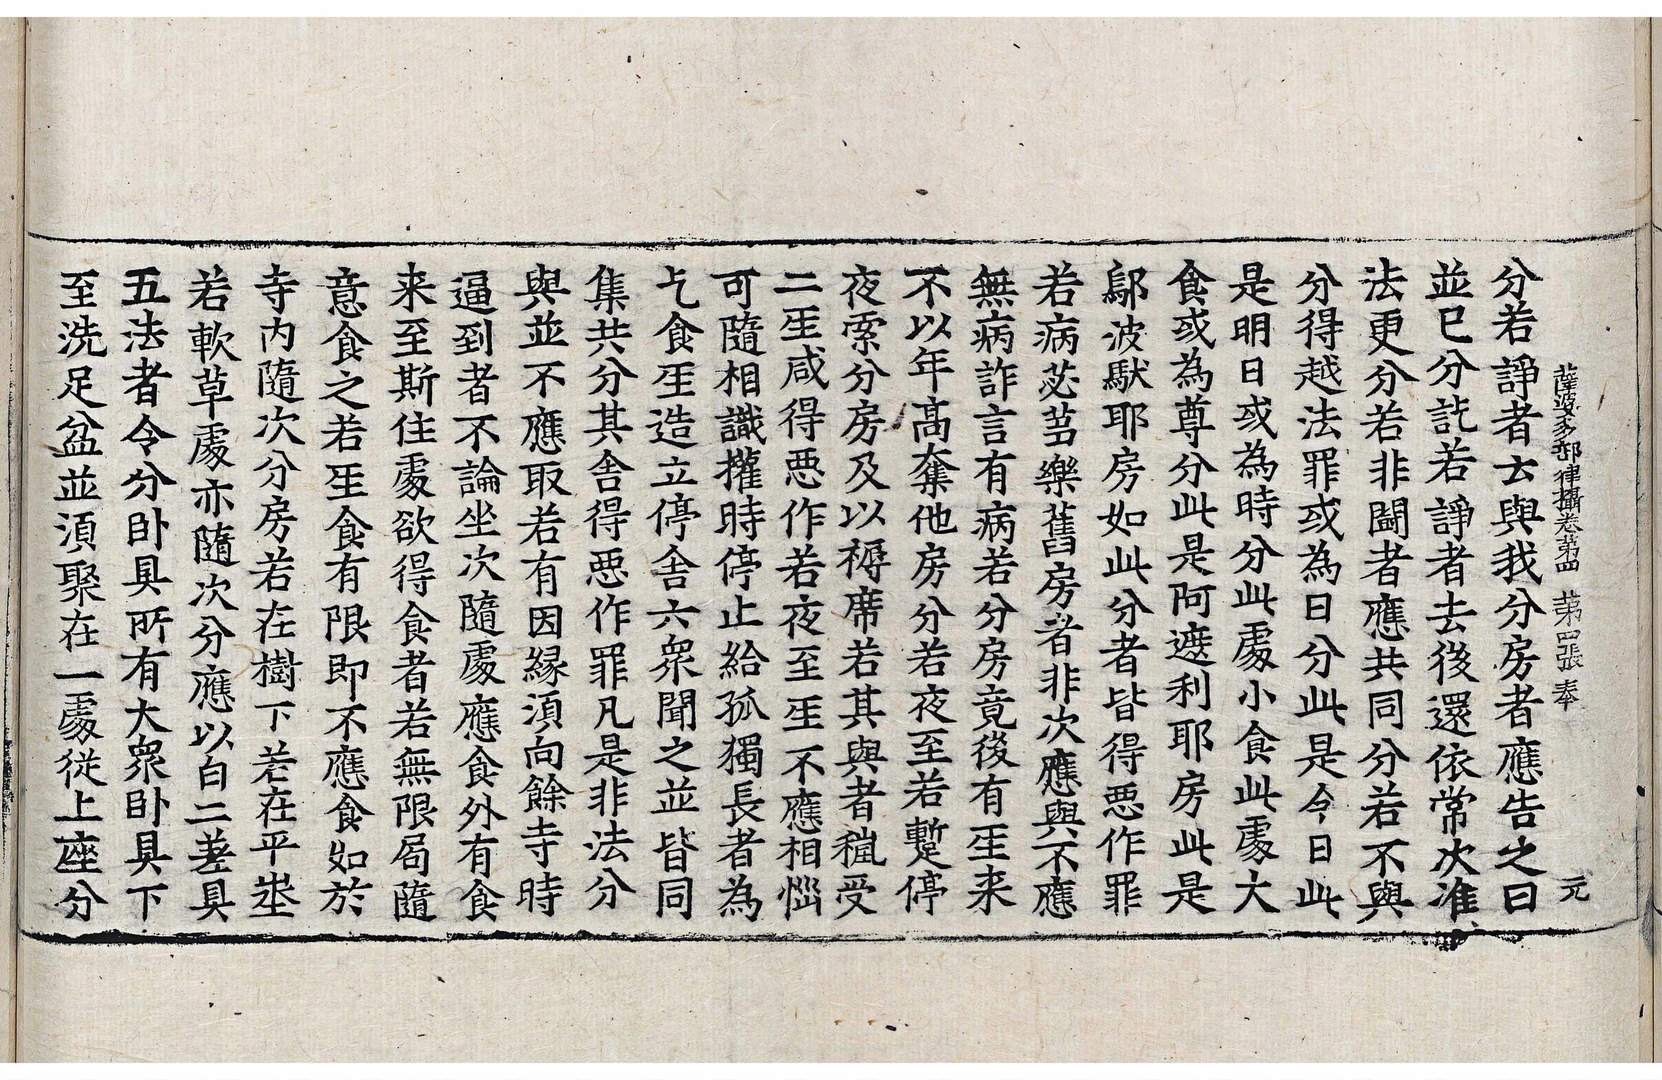 薩婆多部律攝卷第四　第四張　奉　元
分若諍者去與我分房者應告之曰
並已分訖若諍者去後還依常次准
法更分若非鬪者應共同分若不與
分得越法罪或為日分此是今日此
是明日或為時分此處小食此處大
食或為尊分此是阿遮利耶房此是
鄔波馱耶房如此分者皆得惡作罪
若病苾芻樂舊房者非次應與不應
無病詐言有病若分房竟後有𤯔来
不以年髙奪他房分若夜至若蹔停
夜索分房及以褥席若其與者秖受
二𤯔咸得惡作若夜至𤯔不應相惱
可隨相識攉時停止給孤獨長者為
乞食𤯔造立停舍六衆聞之並皆同
集共分其舍得惡作罪凡是非法分
與並不應取若有因緣湏向餘寺時
逼到者不論坐次隨處應食外有食
来至斯住處欲得食者若無限局隨
意食之若𤯔食有限即不應食如於
寺內隨次分房若在樹下若在平坐
若軟草處亦隨次分應以白二差具
五法者令分卧具所有大衆卧具下
至洗足盆並湏聚在一處從上座分